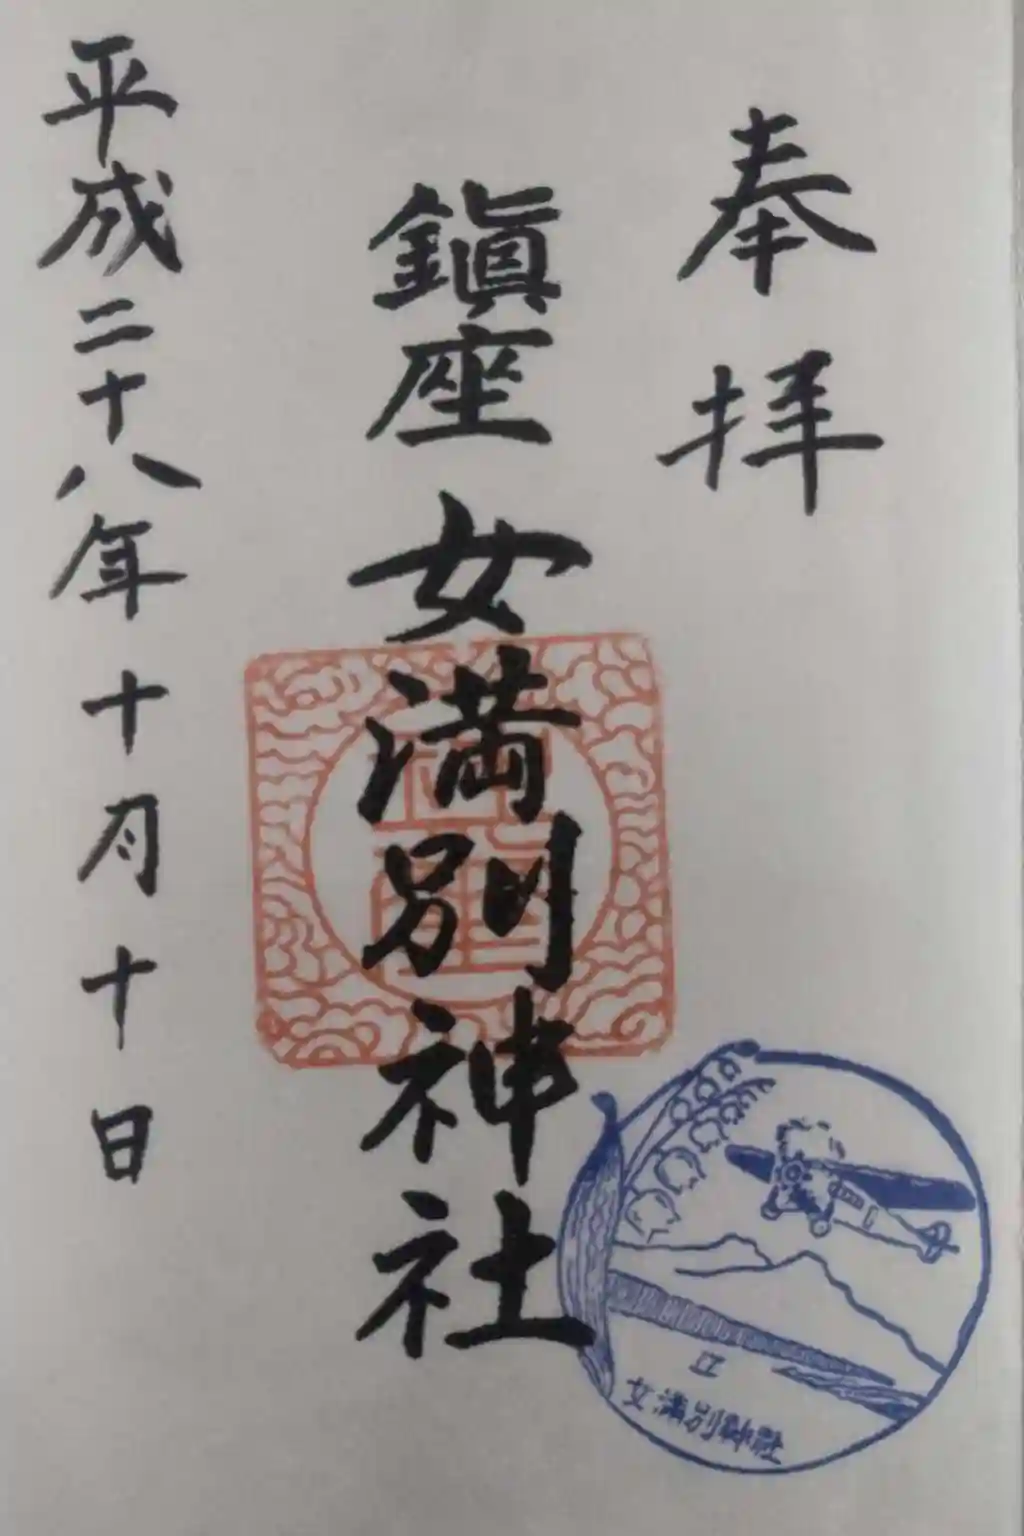 奉拝
鎮座 女満別神社
平成二十八年十月十日
女満別神社